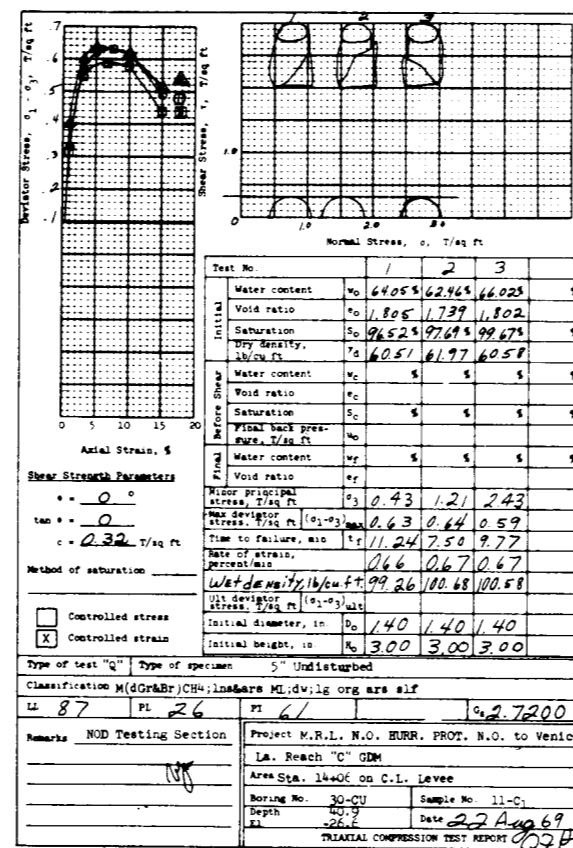 1 2 3
.7
.6
.5
.4
.3
.2
.1
Deviator Stress, σ1 - σ3, T/sq ft
Shear Stress, τ, T/sq ft
1.0
0 1.0 2.0 3.0
Normal Stress, σ, T/sq ft
0 5 10 15 20
Axial Strain, %
Shear Strength Parameters
φ = 0 °
tan φ = 0
c = 0.32 T/sq ft
Method of saturation
Controlled stress
X Controlled strain
Test No. 1 2 3
Initial
Water content w0 64.05% 62.46% 66.02%
Void ratio e0 1.805 1.739 1.802
Saturation S0 96.52% 97.69% 99.67%
Dry density, lb/cu ft γd 60.51 61.97 60.58
Before Shear
Water content wc % % % %
Void ratio ec
Saturation Sc % % % %
Final back pressure, T/sq ft u0
Final
Water content wf % % % %
Void ratio ef
Minor principal stress, T/sq ft σ3 0.43 1.21 2.43
Max deviator stress, T/sq ft (σ1-σ3)max 0.63 0.64 0.59
Time to failure, min tf 11.24 7.50 9.77
Rate of strain, percent/min 0.66 0.67 0.67
Wet density, lb/cu.ft. 99.26 100.68 100.58
Ult deviator stress, T/sq ft (σ1-σ3)ult
Initial diameter, in. D0 1.40 1.40 1.40
Initial height, in. H0 3.00 3.00 3.00
Type of test "Q" Type of specimen 5" Undisturbed
Classification M(dGr&Br)CH4;lns&ars ML;dw;lg org ars slf
LL 87 PL 26 PI 61 Gs 2.7200
Remarks NOD Testing Section
Project M.R.L. N.O. HURR. PROT. N.O. to Venic
La. Reach "C" GDM
Area Sta. 14+06 on C.L. Levee
Boring No. 30-CU Sample No. 11-C1
Depth 40.9
El -26.6 Date 22 Aug 69
TRIAXIAL COMPRESSION TEST REPORT